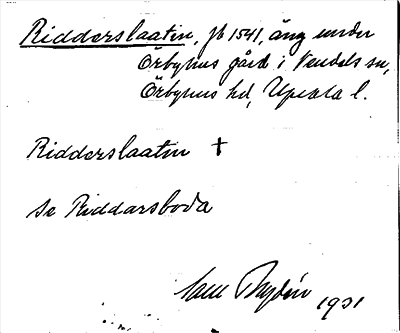 Ridderslaatin, jb 1541, äng under
Örbyhus gård i Vendels sn,
Örbyhus hd, Upsala l.
Ridderslaatin †
se Riddarsboda
1931